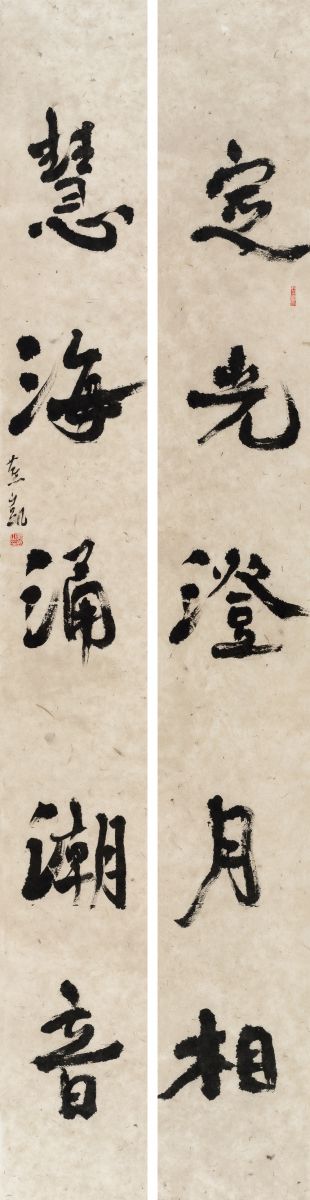 定光澄月相
慧海涌潮音